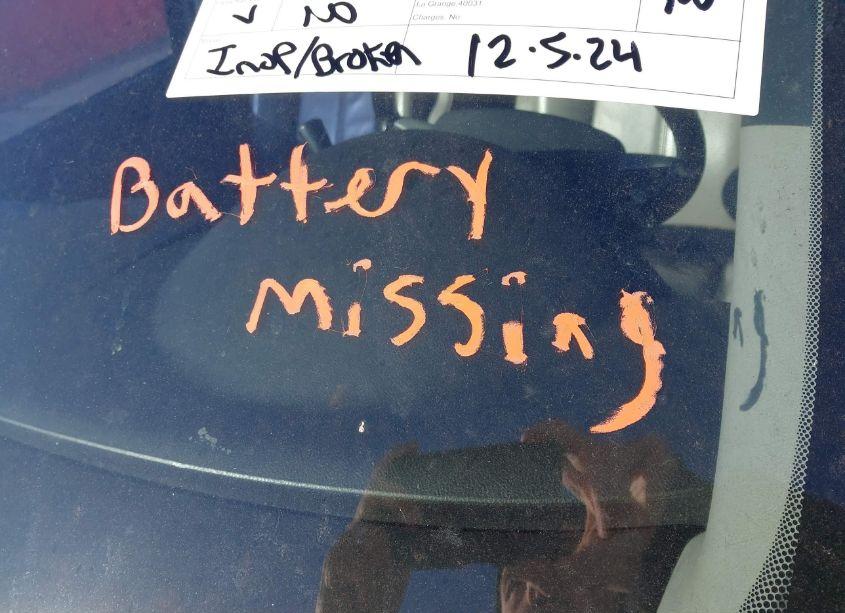 ✓ NO La Grange, 40031 NO
Charges. No
Inop/Broken 12.5.24
Battery
Missing